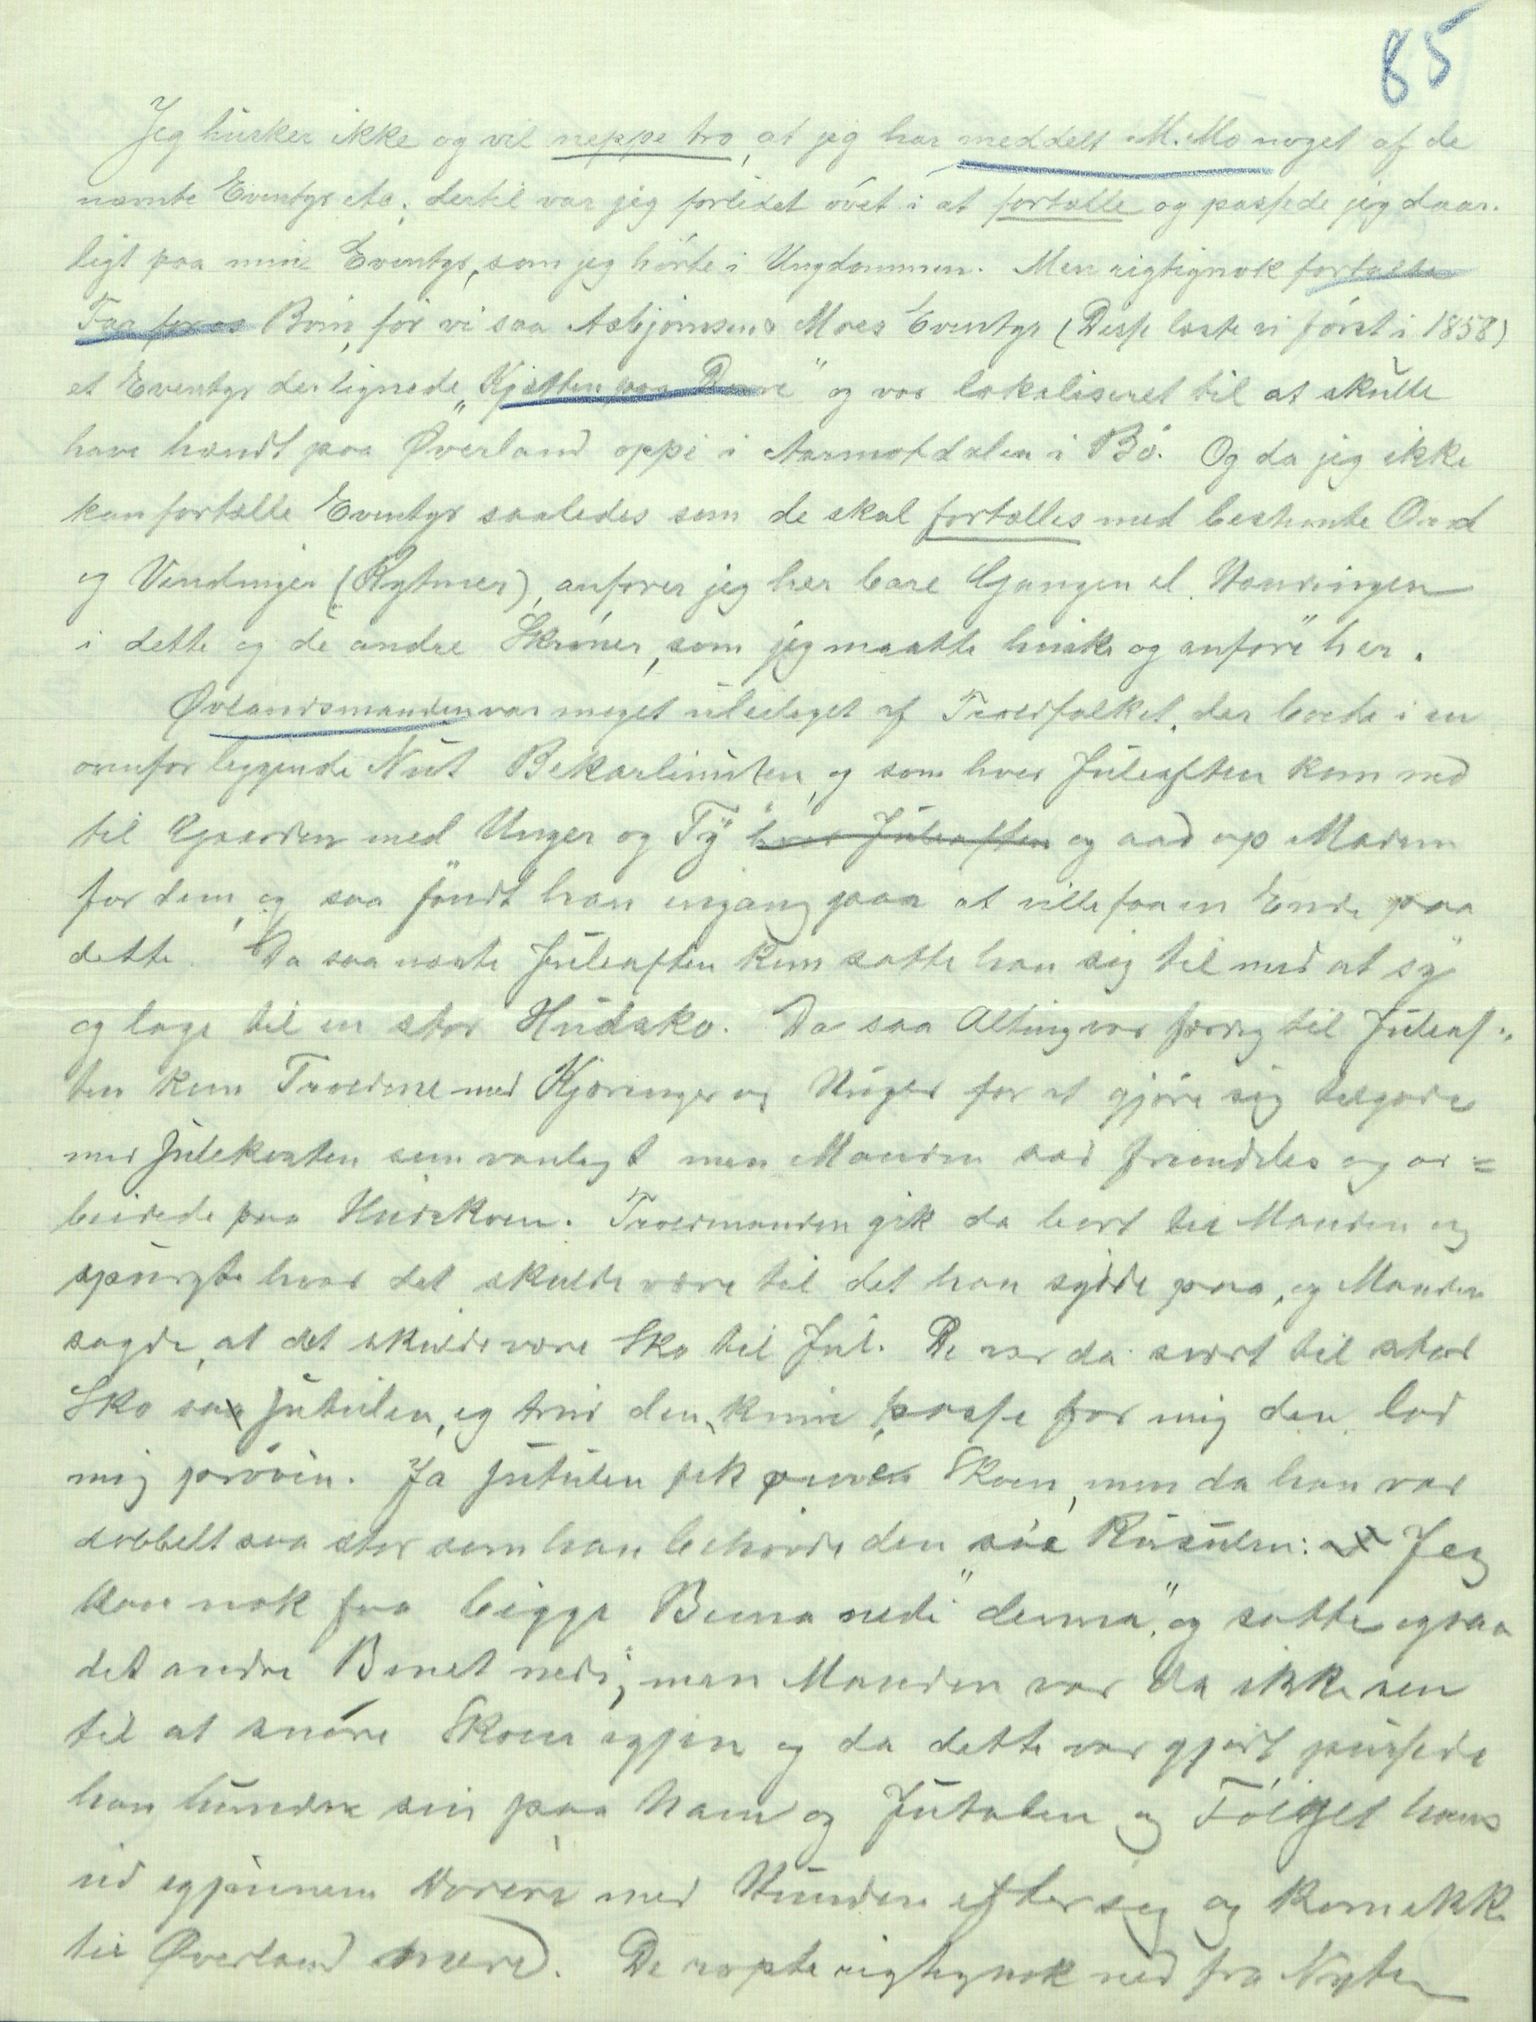 85
Jeg husker ikke og vil neppe tro, at jeg har meddelt M. Mo noget af de
nævnte Eventyr etc. dertil var jeg forlidet øvet i at fortælle og passede jeg daar-
ligt paa mine Eventyr, som jeg hørte i Ungdommen. Men rigtignok fortalte
Far for os Børn, før vi saa Asbjørnsen & Moes Eventyr (Disse læste vi først i 1858)
et Eventyr der lignede „Kjætten paa Dovre" og var lokaliseret til at skulle
have hændt paa Øverland oppe i Aarmotdalen i Bø. Og da jeg ikke
kan fortælle Eventyr saaledes som de skal fortælles med bestemte Ord
og Vendinger (Rytmer), anfører jeg her bare Gangen el. Handlingen
i dette og de andre Skrøner, som jeg maatte huske og anføre her.
Øvlandsmanden var meget uleileget af Troldfolket, der boede i en
ovenfor liggende Nut Bekarlinuten, og som hver Juleaften kom ned
til Gaarden med Unger og Ty hver Juleaften og aad op Maden
for dem, og saa fandt han engang paa at ville faa en Ende paa
dette. Da saa næste Juleaften kom satte han sig til med at sy
og lage til en stor Hudsko. Da saa Alting var færdig til Juleaf-
ten kom Troldene med Kjæringer og Unger for at gjøre sig tilgode
med Julekosten som vanlegt men Manden sad fremdeles og ar=
beidede paa Hudskoen. Troldmanden gik da bort til Manden og
spurgte hvad det skulde være til det han sydde paa, og Manden
sagde, at det skulde være Sko til Jul. De var da svært til stor
Sko saa Jutulen, eg trur den kune passe for mig den lad
mig prøven. Ja Jutulen fik prøve Skoen, men da han var
dobbelt saa stor som han behøvde den sae Rusulen: Jeg
kan nok faa beggje Beina nedi "denna", og satte ogsaa
det andre Benet nedi, men Manden var da ikke sen
til at snøre Skoen igjen og da dette var gjort pussede
han hundene sin paa ham og Jutulen og Følget hans
ud igjennem Dørene med Hunden efter sig og kom ikke
til Øverland mere. De ropte rigtignok ned fra Nuten